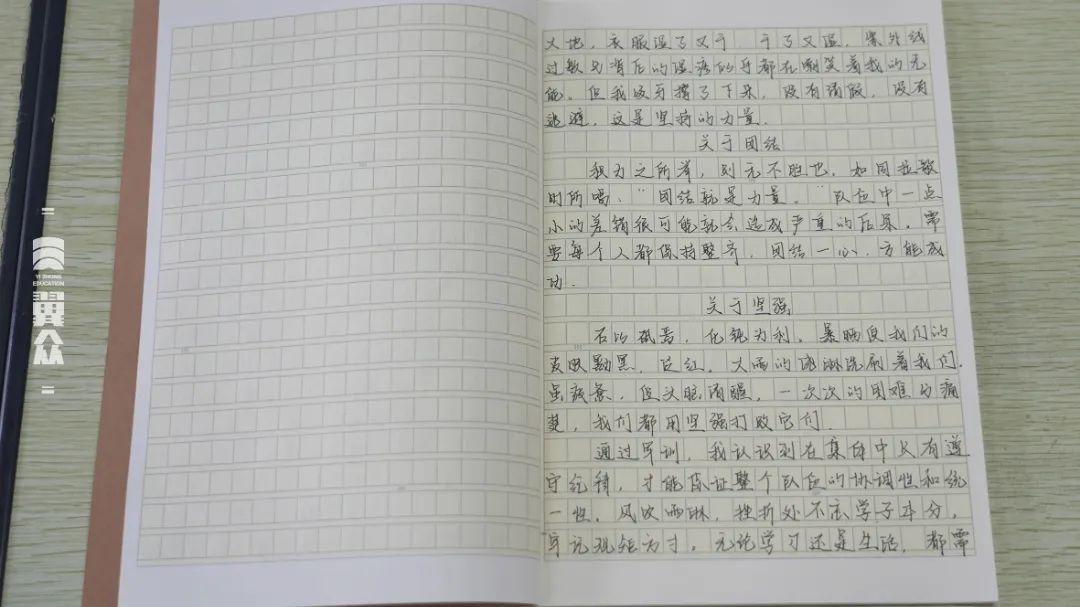 YI ZHONG
EDUCATION
翼众
大地，衣服湿了又干，干了又湿，紫外线
过敏与背后的湿疹似乎都在嘲笑着我的无
能。但我咬牙撑了下来，没有请假，没有
逃避，这是坚持的力量．
关于团结
积力之所举，则无不胜也，如同拉歌
时所唱：“团结就是力量。”队伍中一点
小的差错很可能就会造成严重的后果，需
要每个人都保持整齐，团结一心，方能成
功．
关于坚强
石以砥焉，化钝为利，暴晒使我们的
皮肤黝黑，泛红，大雨的淋洗刷着我们．
虽疲惫，但头脑清醒，一次次的困难与痛
楚，我们都用坚强打败它们．
通过军训，我认识到在集体中只有遵
守纪律，才能保证整个队伍的协调性和统
一性，风吹雨淋，挫折处不忘学子本分，
牢记规矩方寸，无论学习还是生活，都需